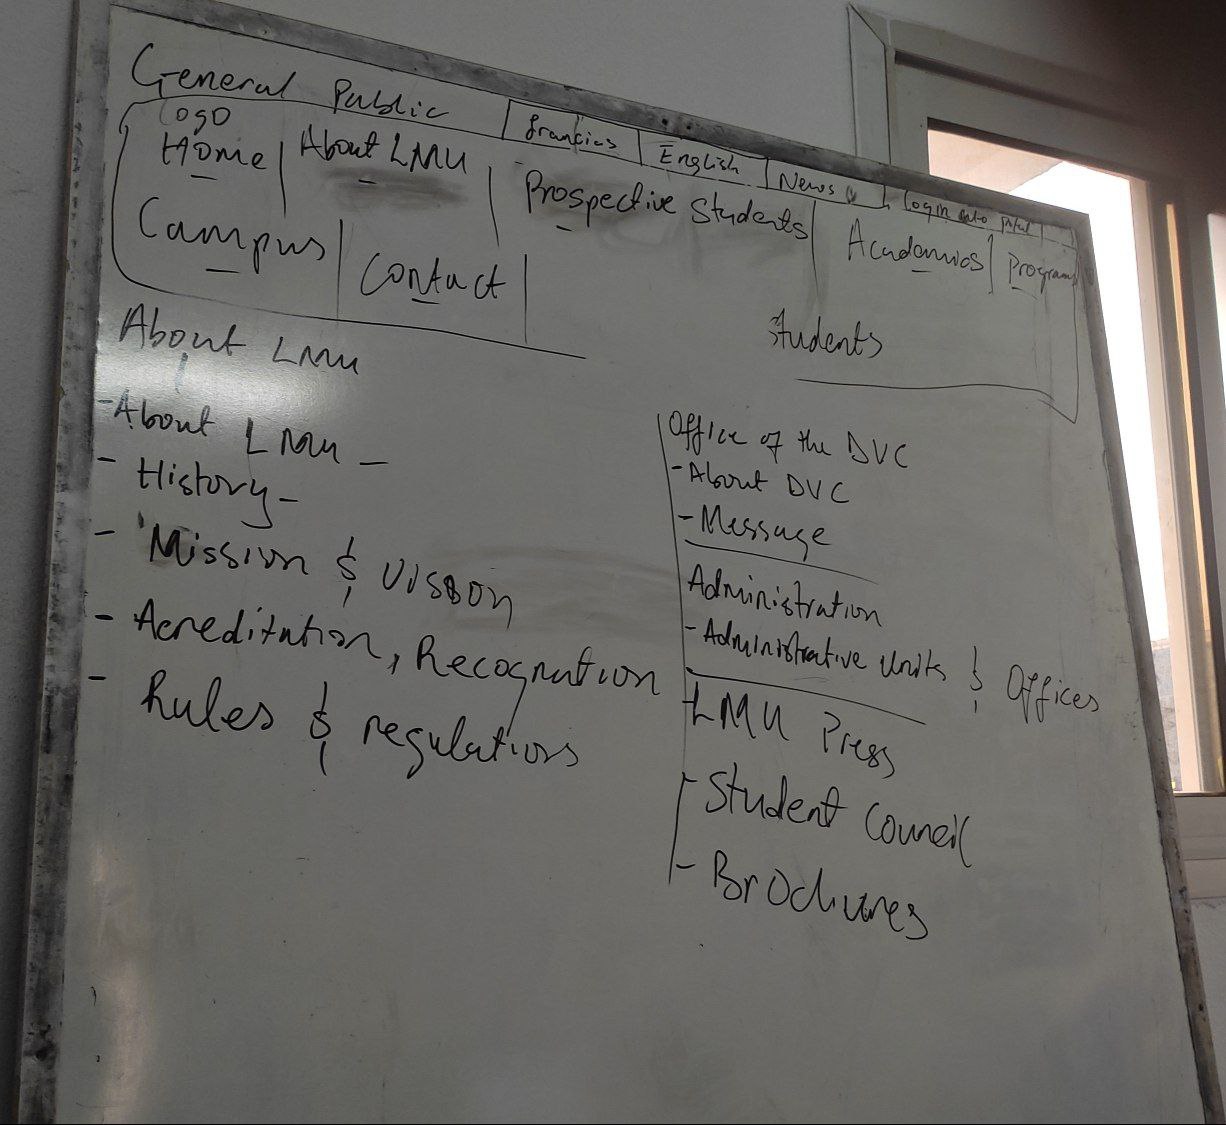 General Public
Logo
francias
English
News
Login into portal
Home
About LMU
Prospective Students
Academics
Programs
Campus
Contact
Students
About LMU
- About LMU -
- History -
- Mission & Vission
- Acreditation, Recognation
- Rules & regulations
Office of the DVC
- About DVC
- Message
Administration
- Administrative Units & Offices
LMU Press
- Student Council
- Brochures